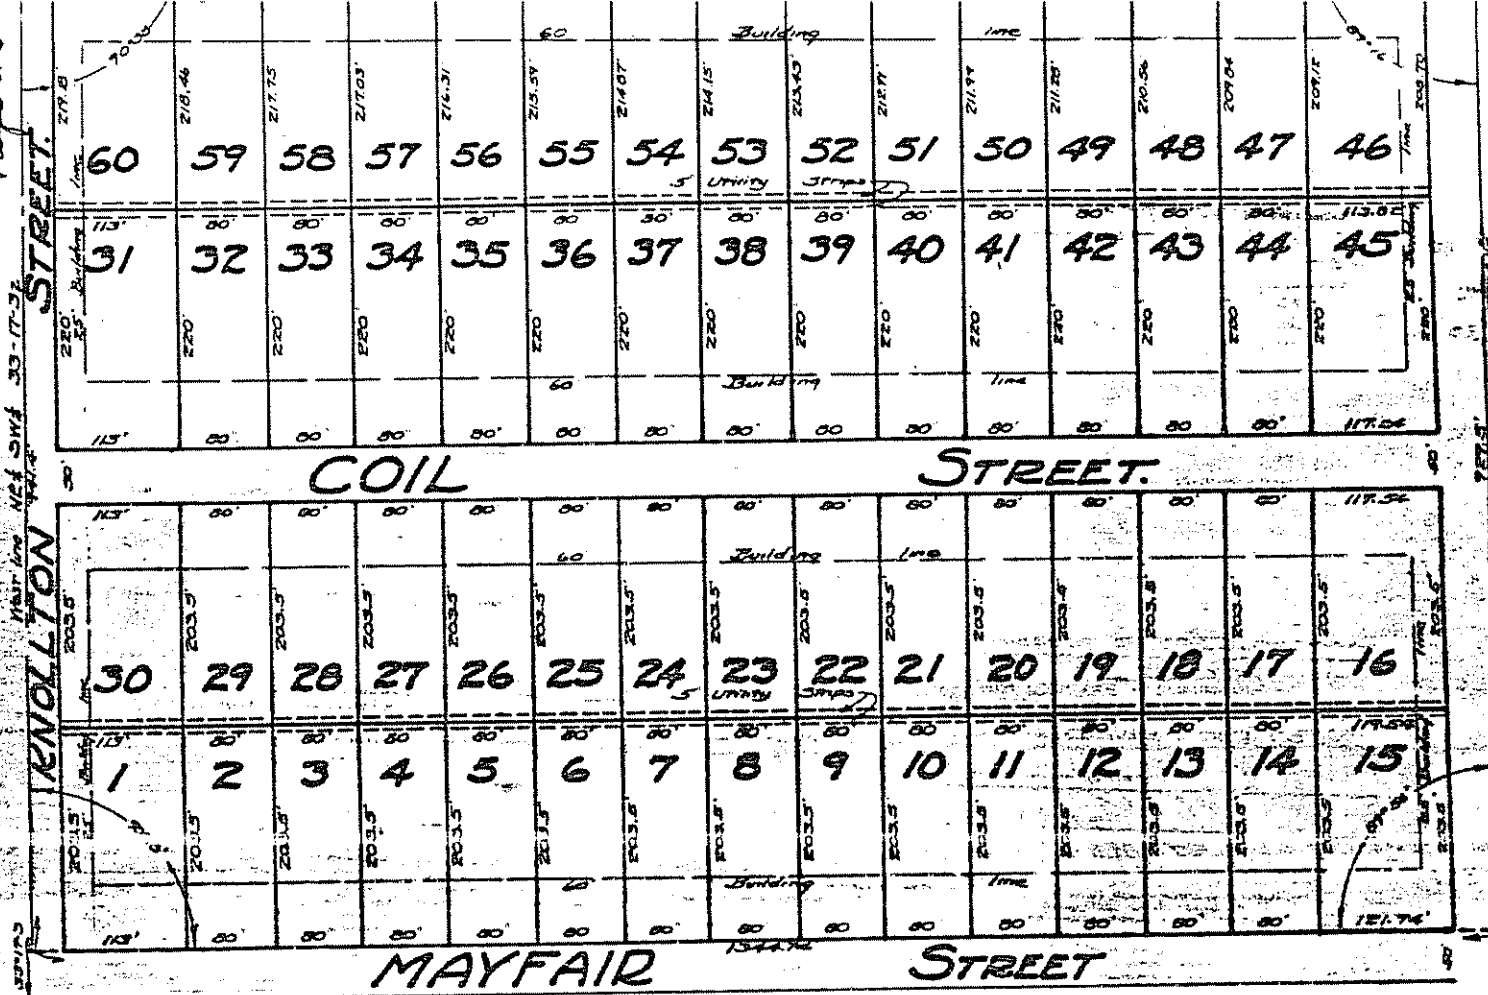 60 Building line
219.18' 218.46 217.75 217.03' 216.31 215.59' 214.87' 214.15' 213.43' 212.71' 211.99 211.28' 210.56 209.84 209.12 208.70
60 59 58 57 56 55 54 53 52 51 50 49 48 47 46
line
line
5' Utility Strips
113' 80' 80' 80' 80' 80 80' 80' 80' 80' 80' 80' 80' 80' 113.82
31 32 33 34 35 36 37 38 39 40 41 42 43 44 45
25' Building
25' Building
220' 220' 220' 220' 220' 220 220' 220' 220 220' 220' 220' 220' 220' 220' 220'
60 Building line
113' 80' 80' 80' 80' 80 80' 80' 80 80' 80' 80' 80' 80' 117.54
50' COIL STREET. 50'
113' 80' 80' 80' 80 80' 80' 80' 80' 80' 80' 80' 80' 80' 117.54
60 Building line
203.5' 203.5' 203.5' 203.5' 203.5' 203.5' 203.5' 203.5' 203.5' 203.5' 203.5' 203.5' 203.5' 203.5' 203.5' 203.5'
30 29 28 27 26 25 24 23 22 21 20 19 18 17 16
line
line
5' Utility Strips
113' 80' 80' 80 80' 80' 80' 80' 80' 80 80' 80' 80' 80' 119.64
1 2 3 4 5 6 7 8 9 10 11 12 13 14 15
25' Building
Building
203.5' 203.5' 203.5' 203.5' 203.5' 203.5' 203.5' 203.5' 203.5' 203.5'
60 Building line
113' 80' 80' 80' 80' 80 80' 80 80 80' 80' 80' 80' 80' 121.74'
MAYFAIR STREET
50'
KNOLLTON STREET.
West line 33-17-32